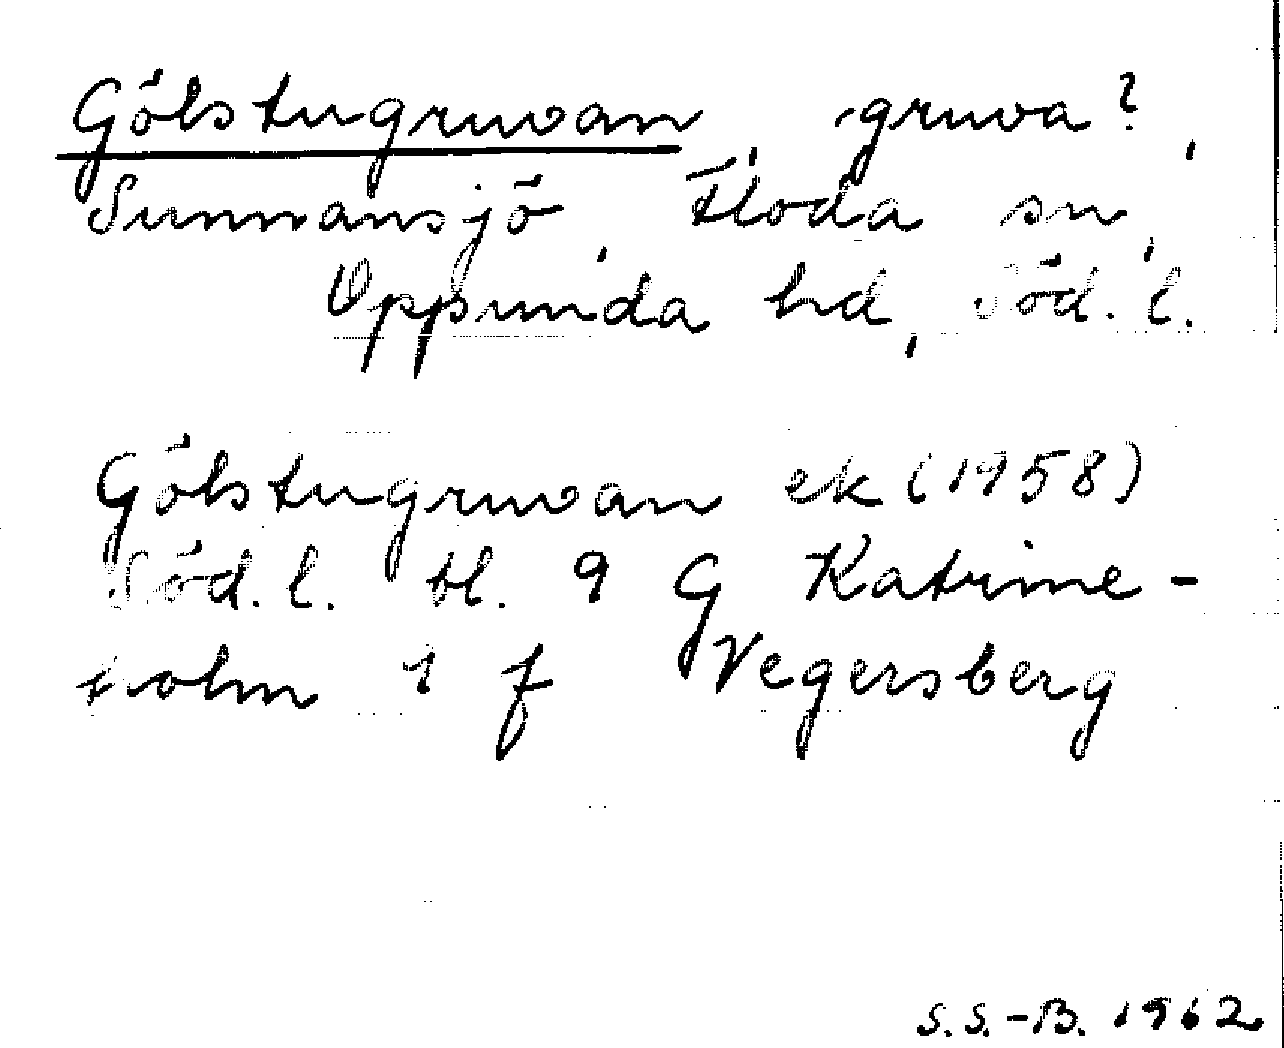 Gölstugruvan gruva?,
Sunnansjö, Floda sn,
Oppunda hd, Söd. l.
Gölstugruvan ek (1958)
Söd. l. bl. 9 G Katrine-
holm 1 f Vegersberg
S.S.-B. 1962